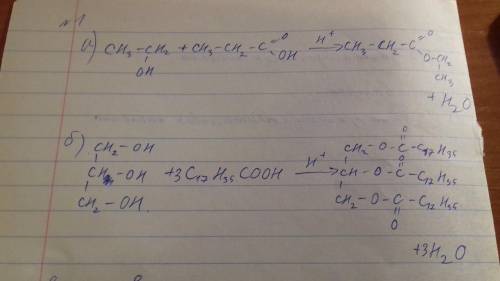 №1
а) CH₃-CH₂ + CH₃-CH₂-C=O OH H⁺ → CH₃-CH₂-C=O O-CH₂ CH₃
OH
+ H₂O
б) CH₂-OH
CH-OH + 3C₁₇H₃₅COOH H⁺ →
CH₂-OH.
CH₂-O-C-C₁₇H₃₅ O
CH-O-C-C₁₇H₃₅ O
CH₂-O-C-C₁₇H₃₅
O
+3H₂O